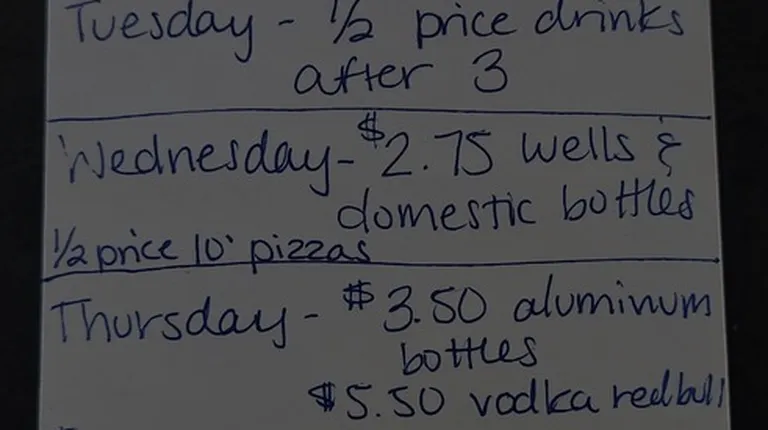 Tuesday - 1/2 price drinks
after 3
Wednesday - $2.75 wells &
domestic bottles
1/2 price 10" pizzas
Thursday - $3.50 aluminum
bottles
$5.50 vodka redbull